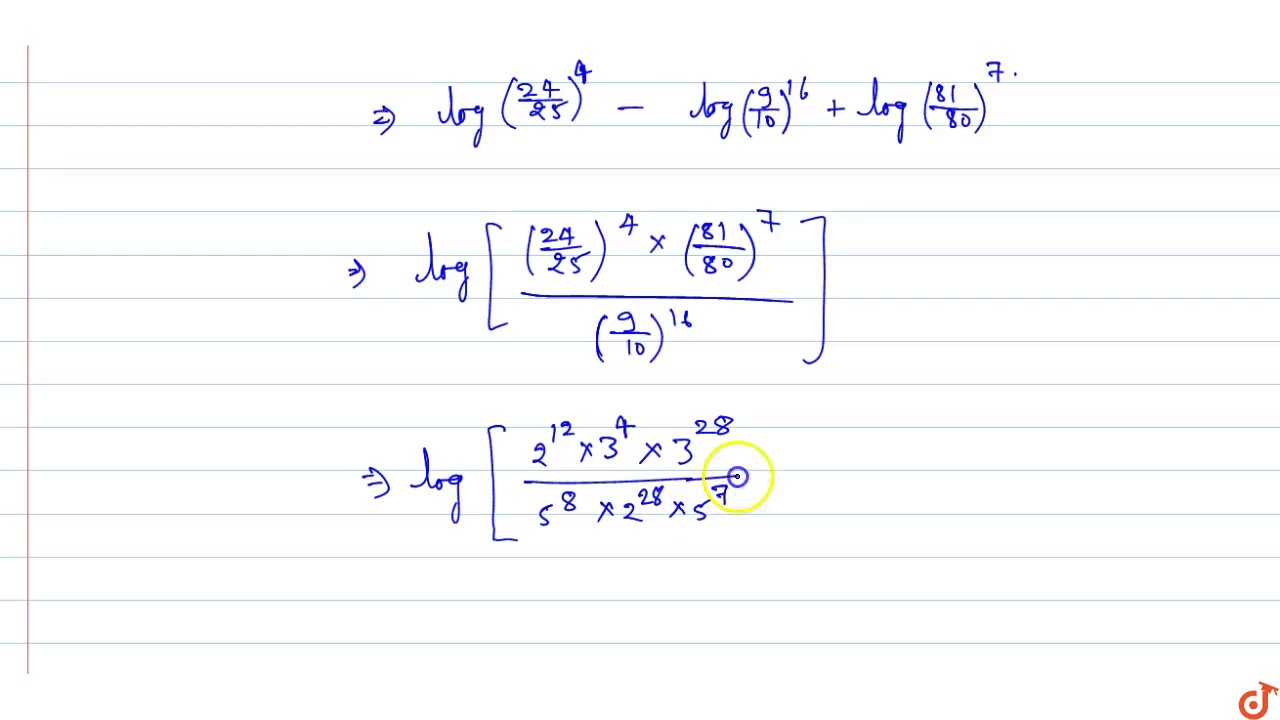 ⇒ log (24/25)^4 − log (9/10)^16 + log (81/80)^7.
⇒ log [ (24/25)^4 × (81/80)^7 / (9/10)^16 ]
⇒ log [ 2^12 × 3^4 × 3^28 / 5^8 × 2^28 × 5^7